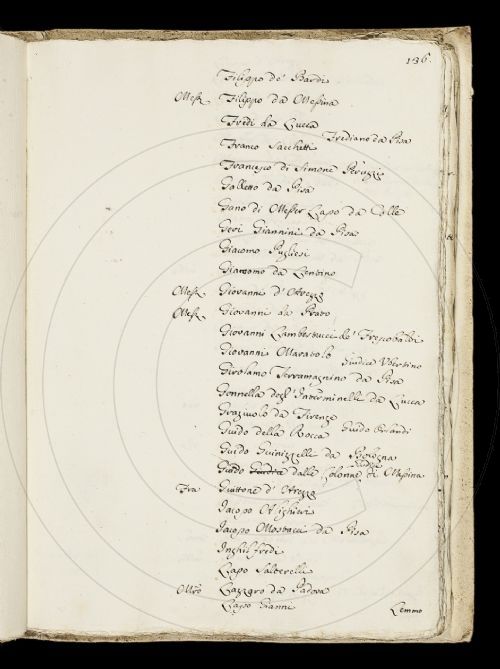 136.
Filippo de' Bardi
Mess. Filippo da Messina
Fredi da Lucca
Frediano da Pisa
Franco Sacchetti
Francesco di Simone Peruzzi
Galletto da Pisa
Gano di Messer Lapo da Colle
Geri Giannini da Pisa
Giacomo Pugliesi
Giacomo da Lentino
Mess. Giovanni d'Arezzo
Mess. Giovanni da Prato
Giovanni Lambertucci de' Frescobaldi
Giovanni Maravolo
Giudice Ubertino
Girolamo Terramagnino da Pisa
Gonnella degl' Interminelli da Lucca
Graziuolo da Firenze
Guido della Rocca Guido Orlandi
Guido Guinizzelli da Bologna
Guido Giudice dalle Colonne di Messina
Fra Guittone d'Arezzo
Iacopo Alighieri
Iacopo Mostacci da Pisa
Inghilfredi
Lapo Salterelli
Mro. Lazzero da Padova
Lapo Gianni
Lemmo